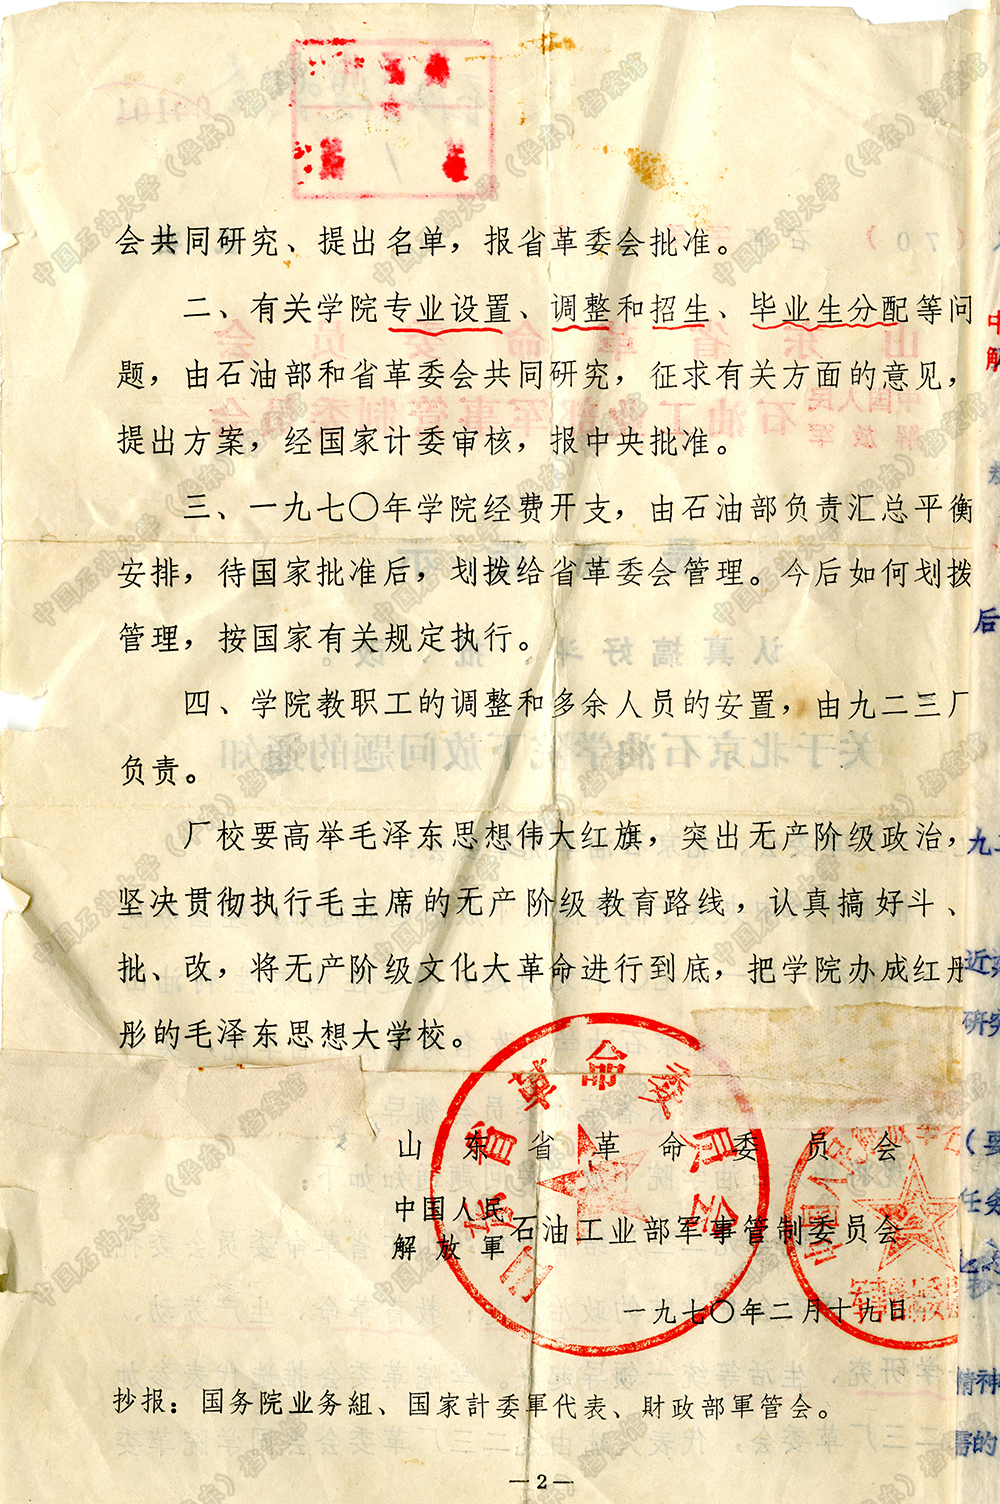 会共同研究、提出名单，报省革委会批准。
二、有关学院专业设置、调整和招生、毕业生分配等问
题，由石油部和省革委会共同研究，征求有关方面的意见，
提出方案，经国家计委审核，报中央批准。
三、一九七〇年学院经费开支，由石油部负责汇总平衡
安排，待国家批准后，划拨给省革委会管理。今后如何划拨
管理，按国家有关规定执行。
四、学院教职工的调整和多余人员的安置，由九二三厂
负责。
厂校要高举毛泽东思想伟大红旗，突出无产阶级政治，
坚决贯彻执行毛主席的无产阶级教育路线，认真搞好斗、
批、改，将无产阶级文化大革命进行到底，把学院办成红彤
彤的毛泽东思想大学校。
山东省革命委员会
中国人民
解放軍
石油工业部军事管制委员会
一九七〇年二月十九日
抄报：国务院业务組、国家計委軍代表、財政部軍管会。
—2—
山东省革命委员会
中国石油大学（华东）档案馆